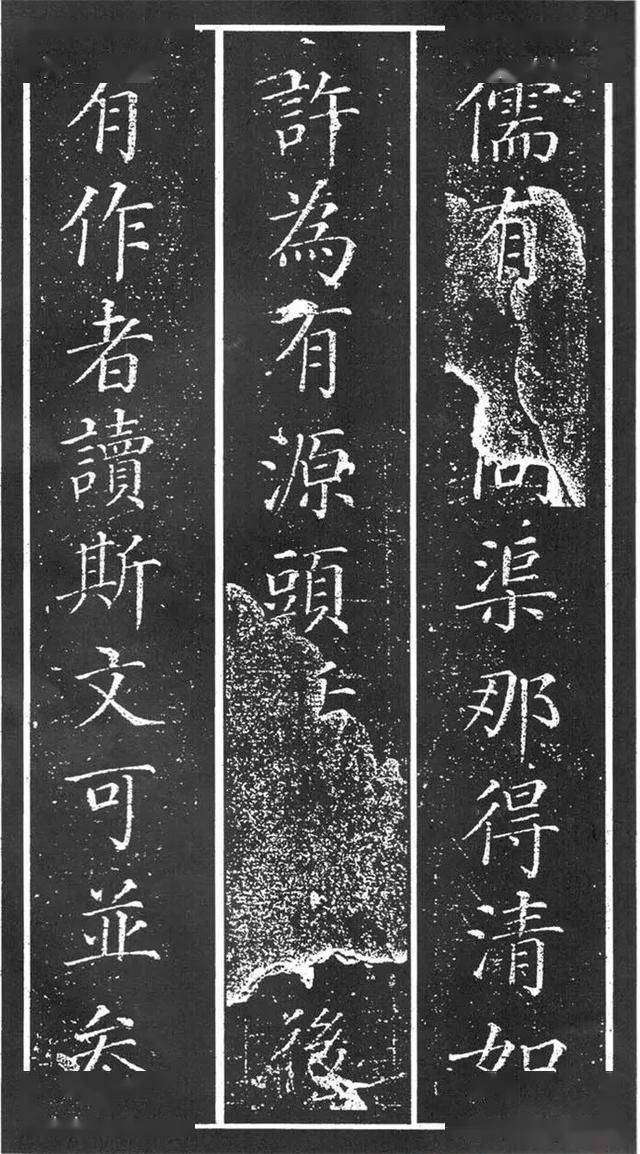 儒有問渠那得清如
許為有源頭後
有作者讀斯文可並叅